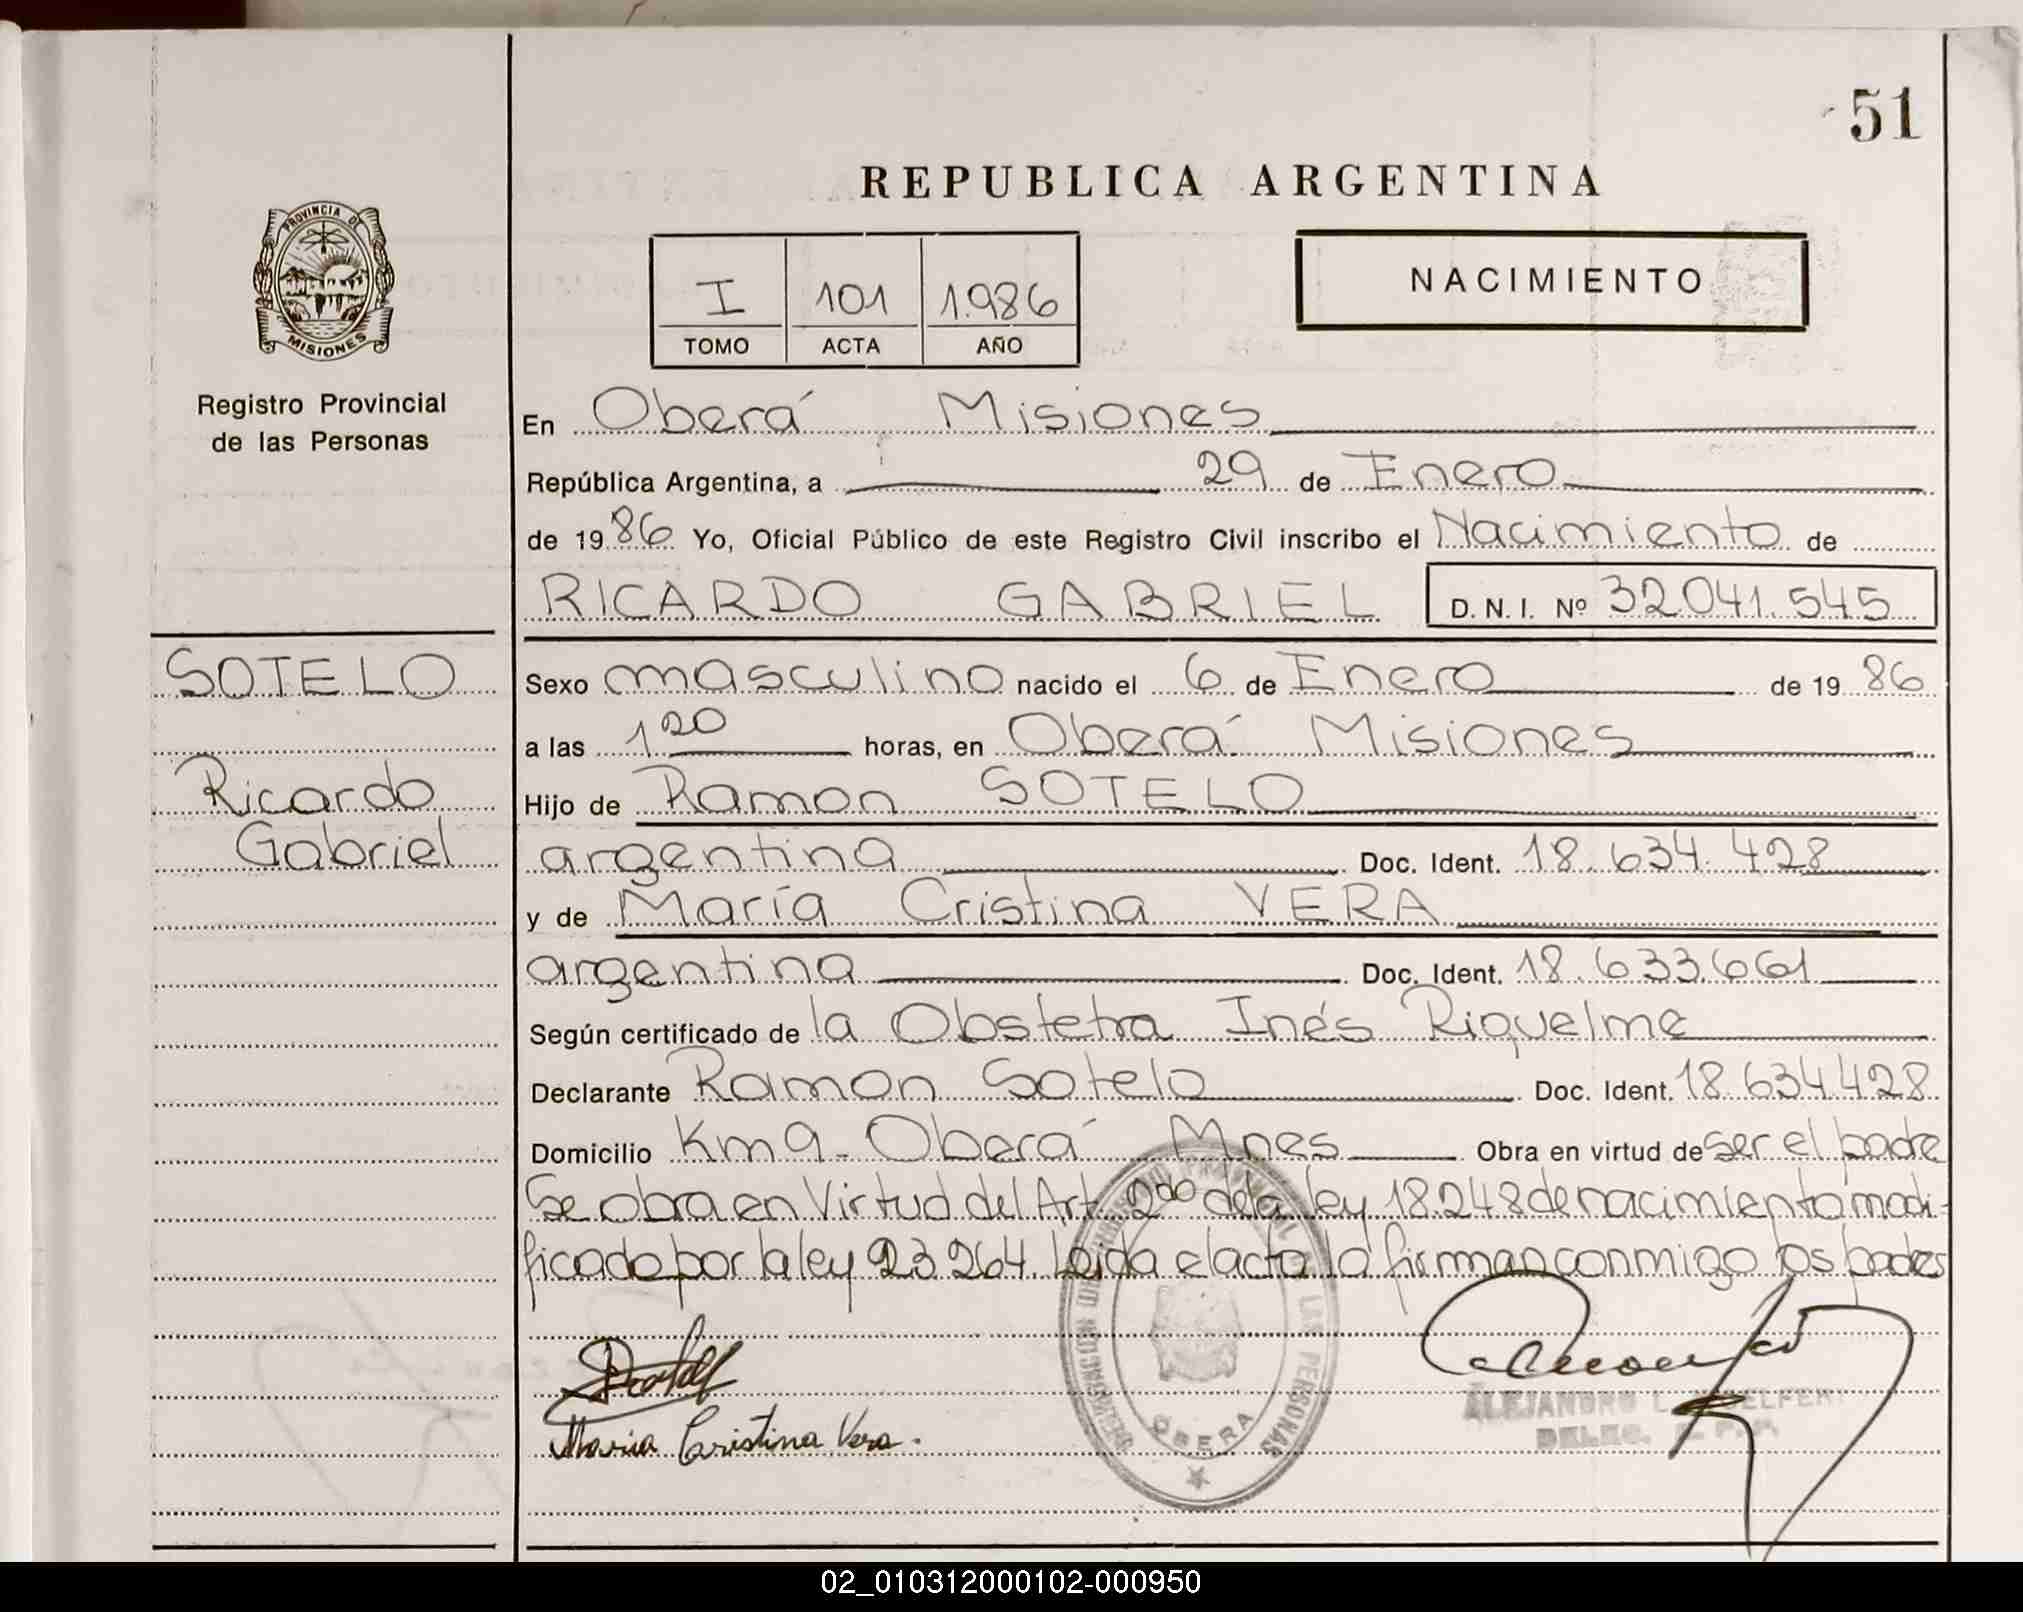 51
REPUBLICA ARGENTINA
PROVINCIA DE
MISIONES
Registro Provincial
de las Personas
I 101 1.986
TOMO ACTA AÑO
NACIMIENTO
En Oberá Misiones
República Argentina, a 29 de Enero
de 1986 Yo, Oficial Público de este Registro Civil inscribo el Nacimiento de
RICARDO GABRIEL D. N. I. Nº 32.041.545
SOTELO
Ricardo
Gabriel
Sexo masculino nacido el 6 de Enero de 1986
a las 1 20 horas, en Oberá Misiones
Hijo de Ramon SOTELO
argentina Doc. Ident. 18.634.428
y de María Cristina VERA
argentina Doc. Ident. 18.633.661
Según certificado de la Obstetra Inés Riquelme
Declarante Ramon Sotelo Doc. Ident. 18.634.428
Domicilio Km 9 - Oberá Mnes Obra en virtud de ser el padre
Se obra en Virtud del Art. 2do de la ley 18.248 de nacimiento modi-
ficado por la ley 23.264. Leída el acta la firman conmigo los padres
PROVINCIAL DE LAS PERSONAS
OBERA
ALEJANDRO L.
María Cristina Vera.
02_010312000102-000950